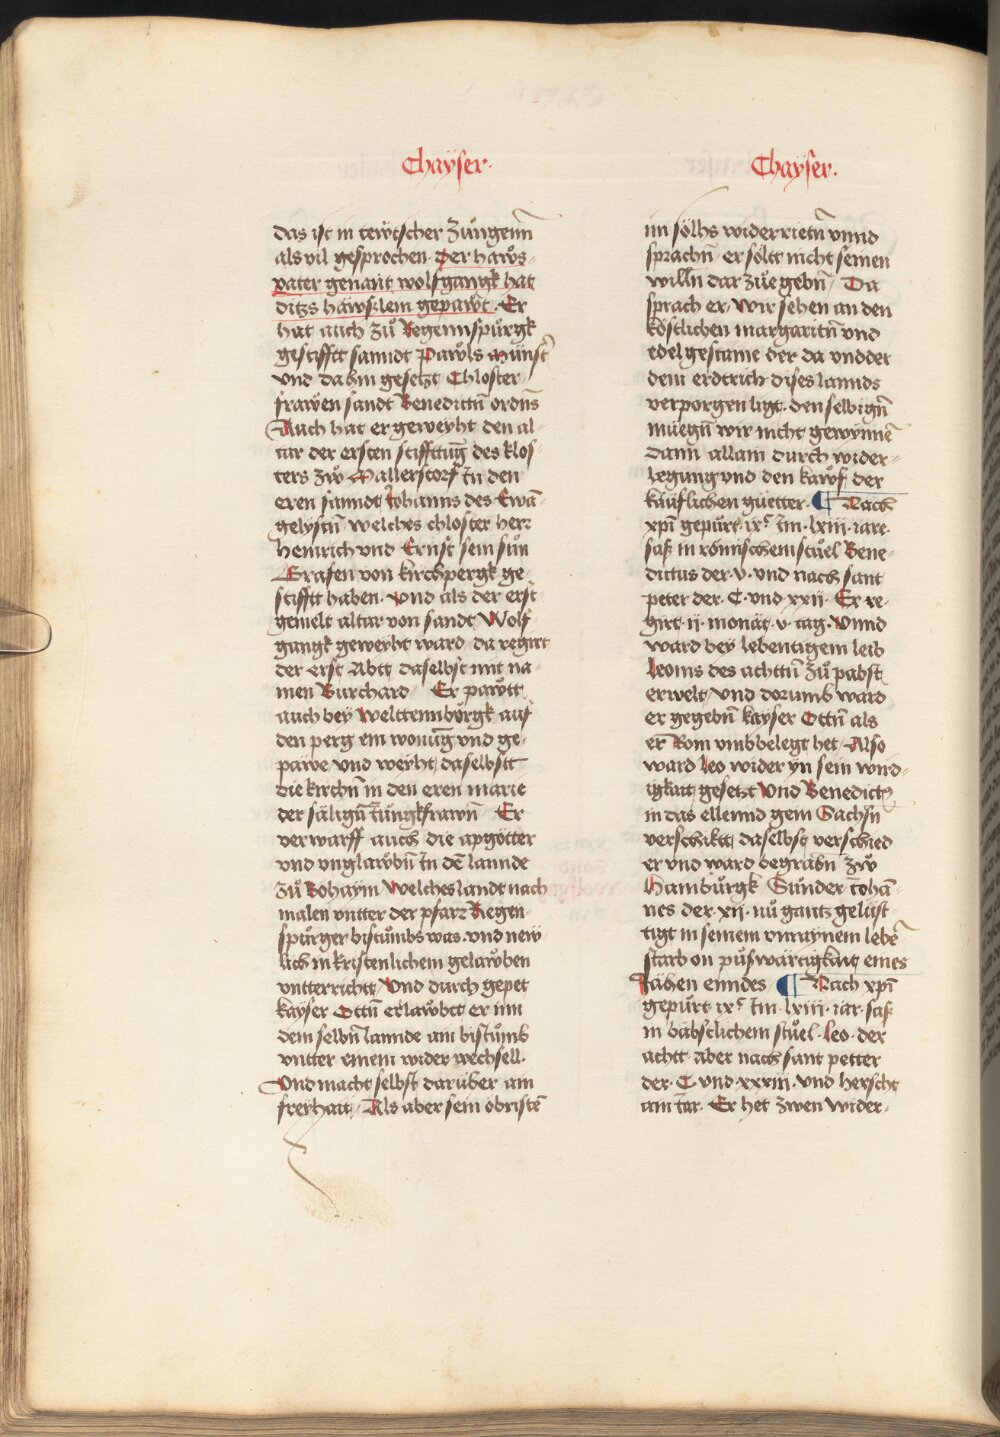 Chaÿser·
das ist in tewtscher zŭngenn̄
als vil gesprochen· Der haws-
vater genant wolfgangk hat
ditzs häwslem gepawt· Er
hat auch zŭ Regennspŭrgk
gestifftt sanndt Pawls Münst̄
vnd dahin gesetzt Chloster-
frawen sandt Benedictn̄ ordns
Auch hat er geweyht den al-
tar der ersten stifftŭg des klos-
ters zw Mallerstorf In den
eren sanndt Johanns des Ewā-
gelystn̄ welches chloster herr
heinrich vnd Ernst sein sŭn
Grafen von kirchpergk ge
stifftt haben· Vnd als der erst-
gemelt altar von sandt Wolf-
gangk geweyht ward· da regirt
der erst Abtt daselbst mit na-
men Burchard Er pawtt
auch bey Welttennbŭrgk auf
den perg ein wonŭg vnd ge-
pawe vnd weyht daselbstt
die kirchn̄ in den eren marie
der sälign̄ Jŭngkfrawn̄ Er
verwarff auch die apgötter
vnd vnglawbn̄ In dē lannde
zŭ Bohaym· Welches landt nach
malen vntter der pfarr Regen-
spŭrger bistŭmbs was· vnd new-
lich in kristenlichem gelawben
vntterrichtt Vnd durch gepet
kayser Ottn̄ erlawbtt er im
dem selbn̄ lannde ain bistŭmb
vntter einem wider wechsell·
Vnd macht selbst darüber ain
freyhait· Als aber sein öbristē
Chaÿser·
im sölhs widerrietn̄ vnnd
sprachn̄ er söltt nicht seinen
willn̄ dar zŭe gebn̄ Da
sprach er· Wir sehen an den
köstlichen margaritn̄ vnd
edel gestaine der da vndder
dem erdtrich dises lannds
verporgen ligt· den selbign̄
müegn̄ wir nicht gewynnē
dann allain durch wider-
legung vnd den kawf der
käuflichen güetter· ¶ Nach
xpī gepŭrt· ixᶜ· Im· lxiii· iare·
saß in römischem stŭel Bene-
dictus der· v· vnd nach sant
peter der· C· vnd xxii· Er re-
girt· ii· monat· v· tag· Vnnd
ward bey lebentigem leib
Leonis des achttn̄ zŭ pabst
erwelt vnd dorumb ward
er gegebn̄ kayser Ottn̄ als
er Rom vmbbelegt het· Also
ward Leo wider yn sein wird-
igkait gesetzt Vnd Benedict⁹
in das ellennd gein Sachsn̄
verschiktt daselbst verschied
er vnd ward begrabn̄ zw
Hamburgk Sŭnder Johā-
nes der· xii· nŭ gantz gelüst-
tigt in seinem vnraynem lebē
starb on pŭswärtigkait eines
Jähen enndes ¶ Nach xpī
gepŭrt· ixᶜ· Im· lxiii· iar· saß
in bäbstlichem stŭel· Leo· der
achtt· aber nach sant petter
der· C· vnd xxiii· vnd herscht
ain Jar· Er het zwen wider-